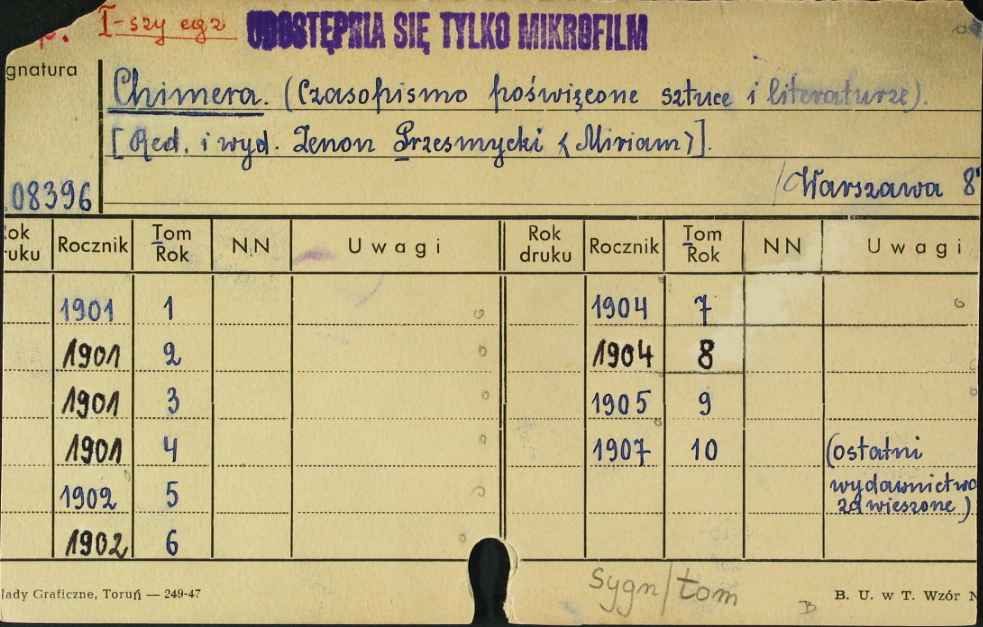 p. I-szy egz UDOSTĘPNIA SIĘ TYLKO MIKROFILM
gnatura
Chimera. (Czasopismo poświęcone sztuce i literaturze).
[Red. i wyd. Zenon Przesmycki <Miriam>].
08396
/Warszawa 8°
ok
uku Rocznik Tom
Rok NN Uwagi Rok
druku Rocznik Tom
Rok NN Uwagi
1901 1 1904 7
1901 2 1904 8
1901 3 1905 9
1901 4 1907 10 (ostatni
1902 5 wydawnictwo
zawieszone)
1902 6
łady Graficzne, Toruń — 249-47
sygn/tom
B
B. U. w T. Wzór N